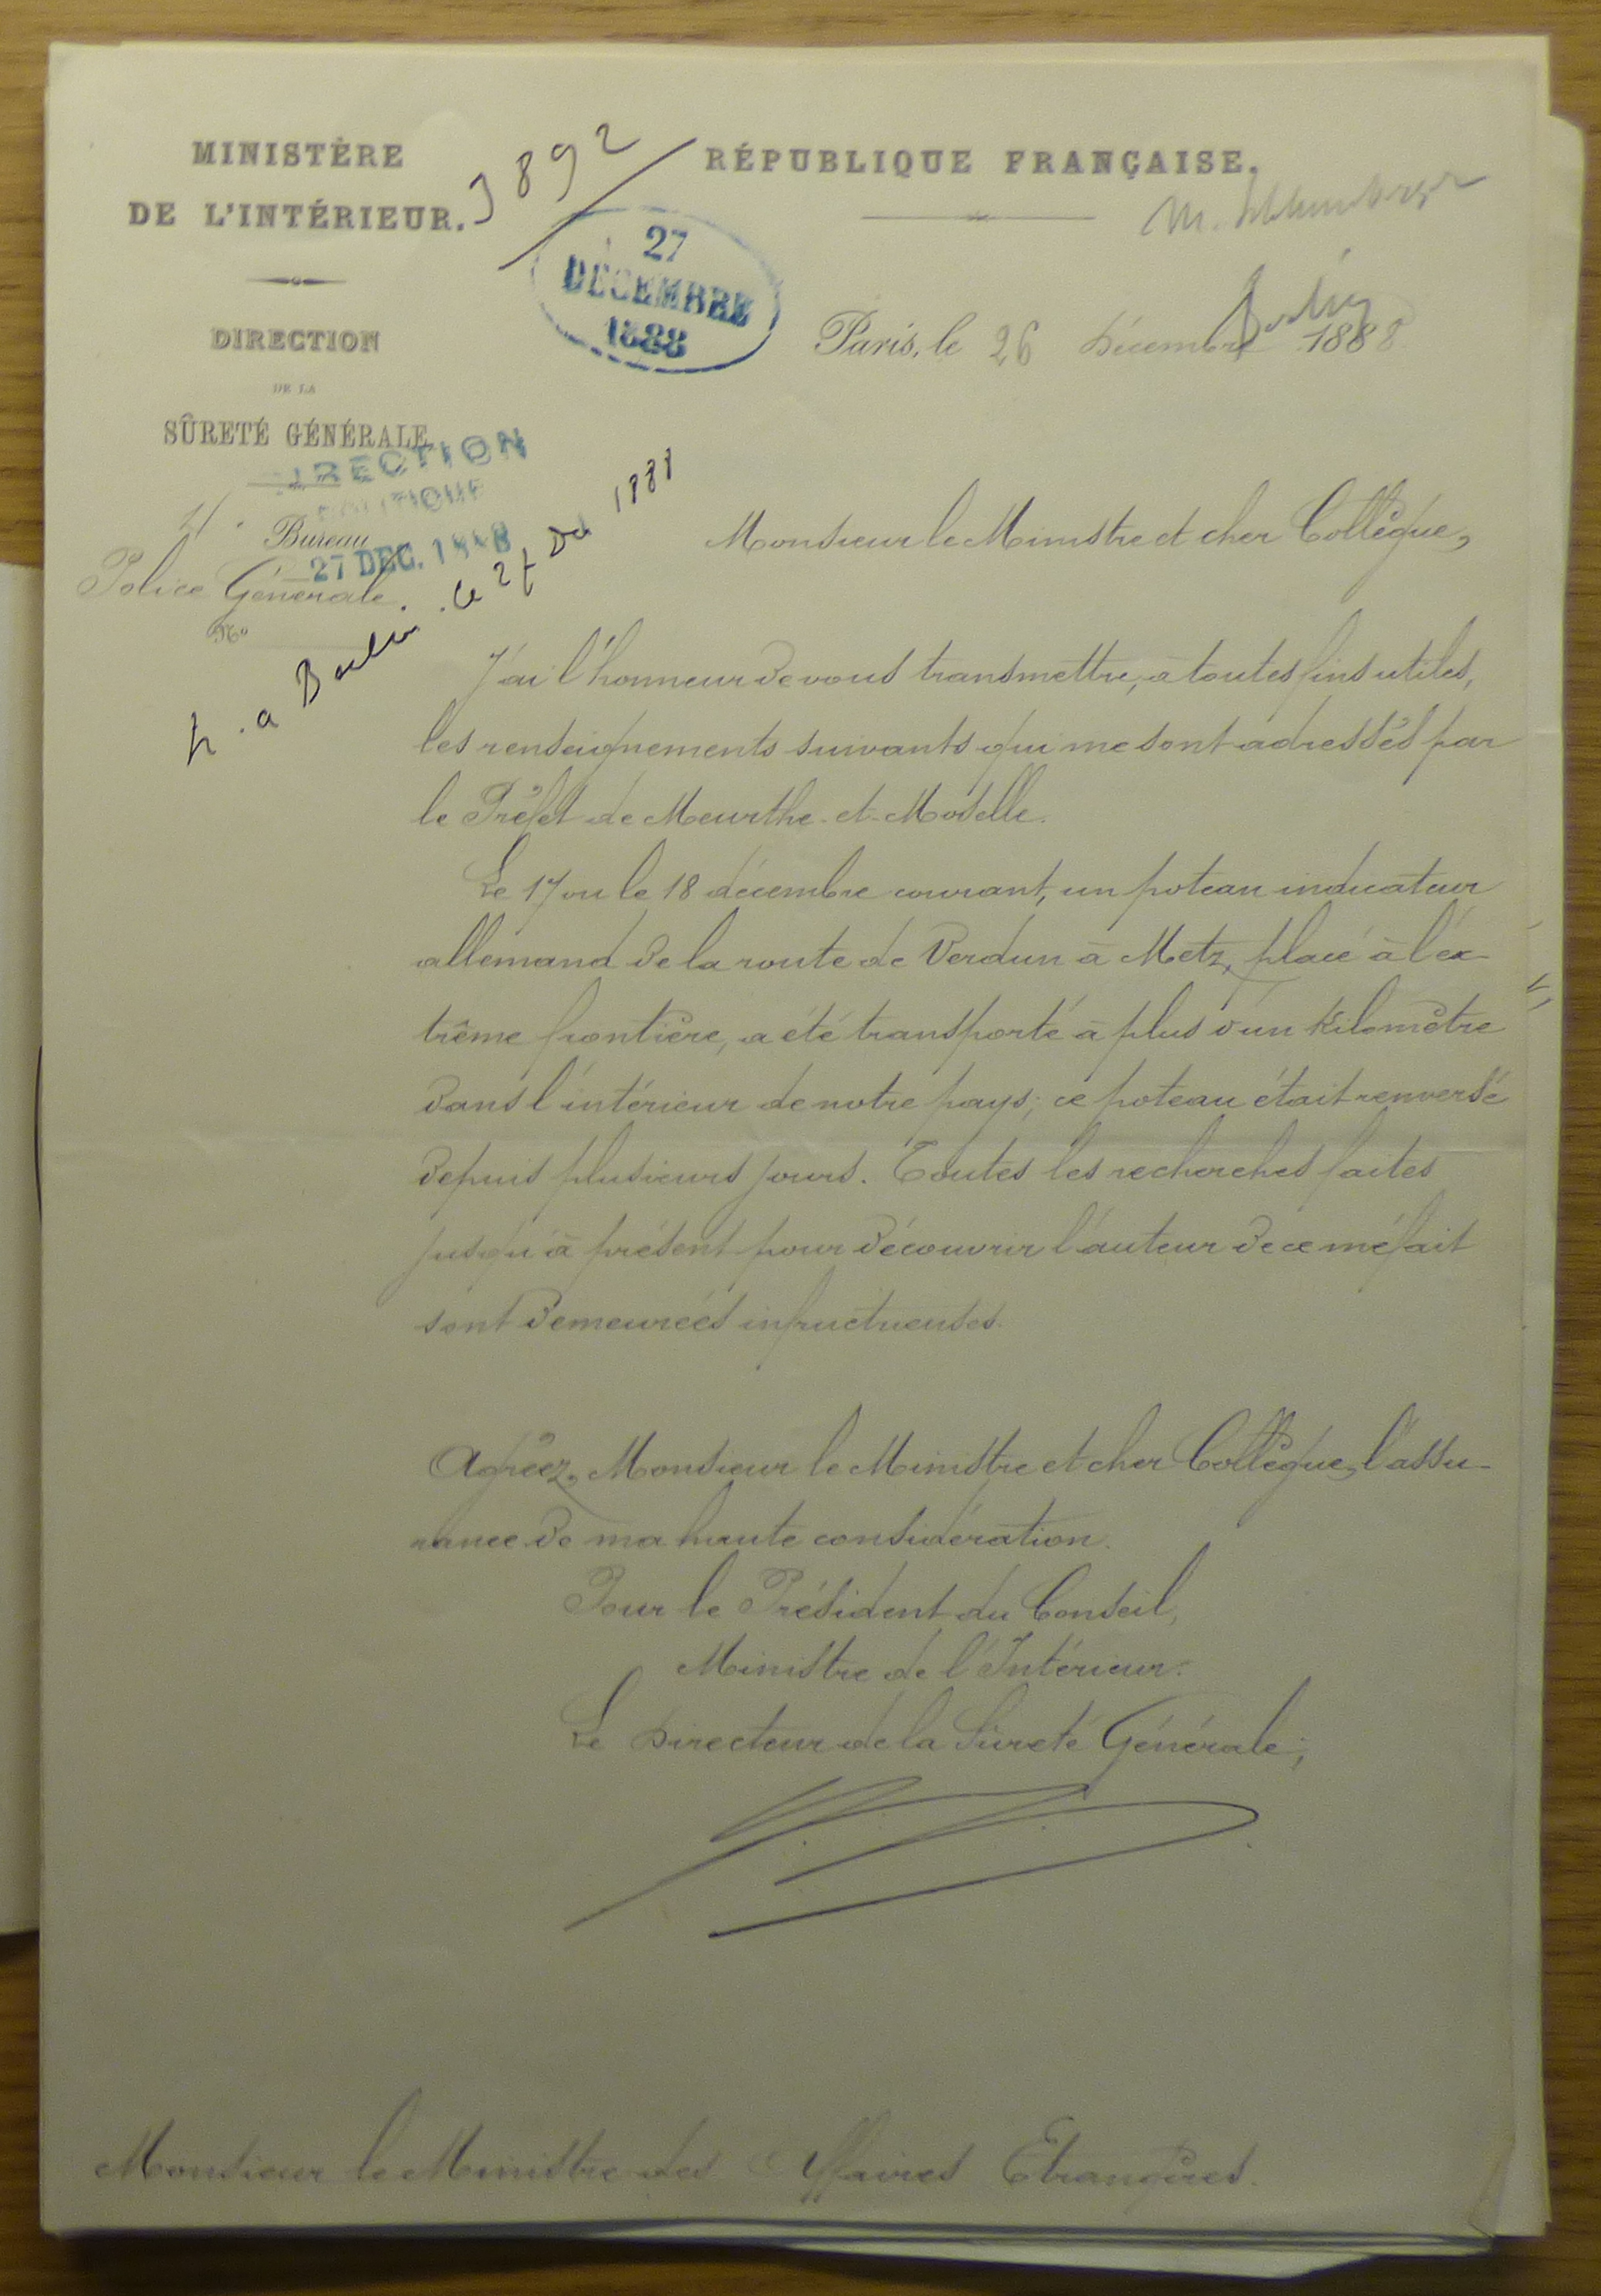 MINISTÈRE
DE L'INTÉRIEUR.
DIRECTION
DE LA
SÛRETÉ GÉNÉRALE
Bureau
Police Générale.
No
3892
27
DÉCEMBRE
1888
DIRECTION
POLITIQUE
27 DEC. 1888
à Berlin. le 27 Dec 1888
RÉPUBLIQUE FRANÇAISE.
Paris, le 26 Décembre 1888
Monsieur le Ministre et cher Collègue,
J'ai l'honneur de vous transmettre, à toutes fins utiles,
les renseignements suivants qui me sont adressés par
le Préfet de Meurthe-et-Moselle.
Le 17 ou le 18 décembre courant, un poteau indicateur
allemand de la route de Verdun à Metz, placé à l'ex-
trême frontière, a été transporté à plus d'un kilomètre
dans l'intérieur de notre pays; ce poteau était renversé
depuis plusieurs jours. Toutes les recherches faites
jusqu'à présent pour découvrir l'auteur de ce méfait
sont demeurées infructueuses.
Agréez, Monsieur le Ministre et cher Collègue, l'assu-
rance de ma haute considération.
Pour le Président du Conseil,
Ministre de l'Intérieur.
Le Directeur de la Sûreté Générale;
Monsieur le Ministre des Affaires Etrangères.